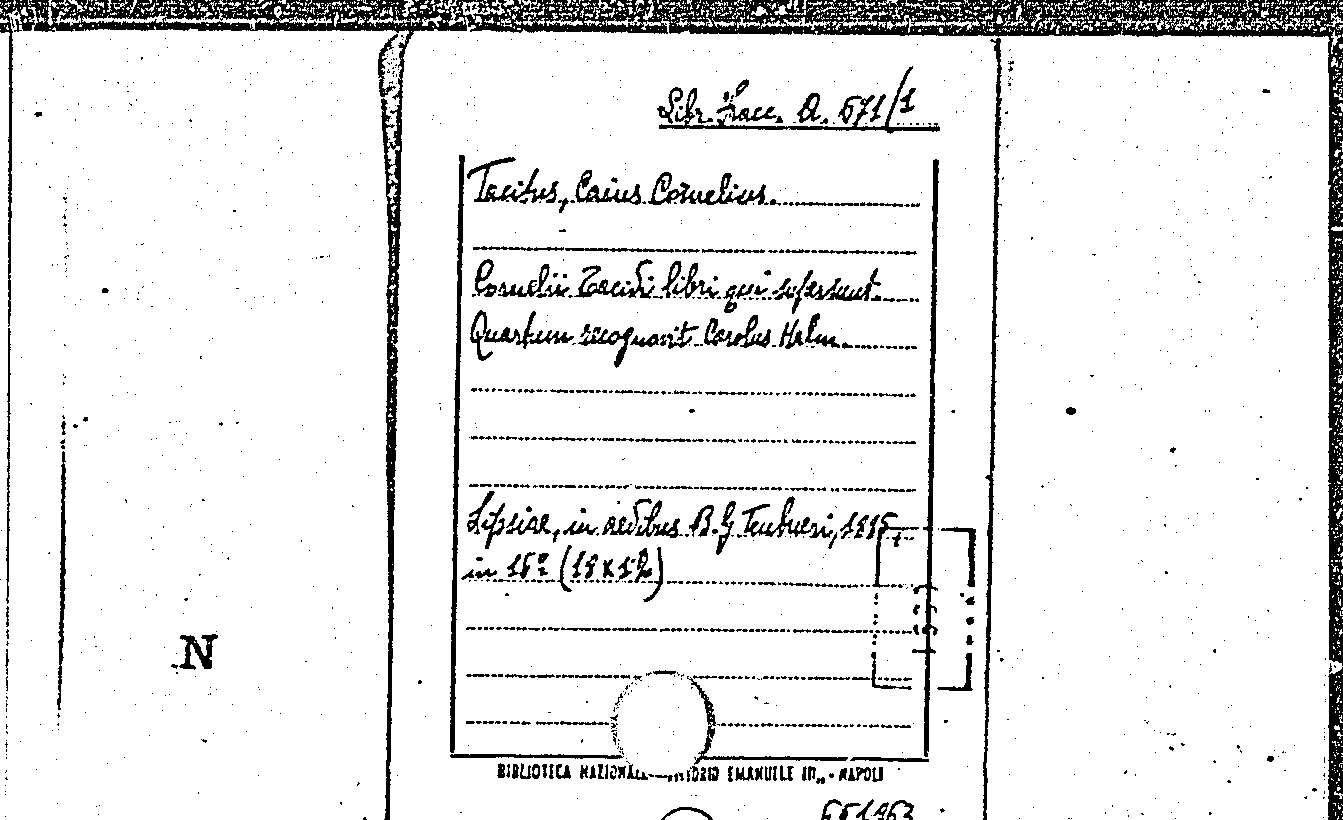 Libr. Frac. A. 571/1
Tacitus, Caius Cornelius.
Cornelii Taciti libri qui supersunt.
Quartum recognovit Carolus Halm.
Lipsiae, in aedibus B. G Teubneri,
in 16º (18 x 12)
N
BIBLIOTECA NAZIONALE EMANUELE III„ - NAPOLI